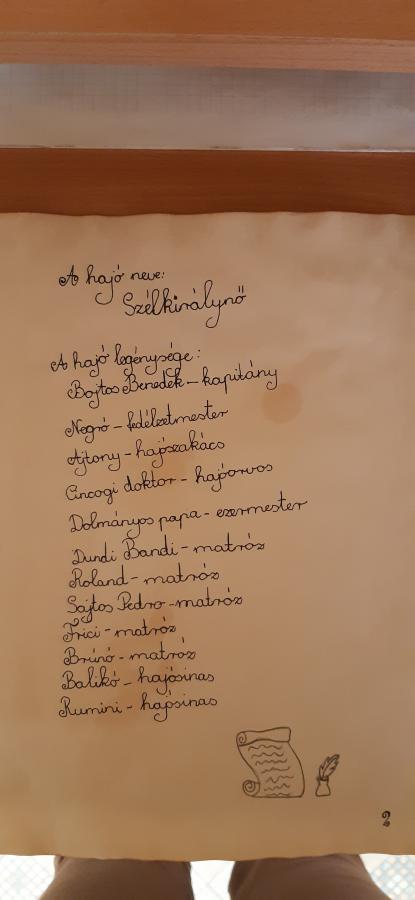 A hajó neve:
Szélkirálynő
A hajó legénysége:
Bojtos Benedek – kapitány
Negró – fedélzetmester
Ajtony – hajószakács
Cincogi doktor – hajóorvos
Dolmányos papa – ezermester
Dundi Bandi – matróz
Roland – matróz
Sajtos Pedro – matróz
Frici – matróz
Brúnó – matróz
Balikó – hajósinas
Rumini – hajósinas
2